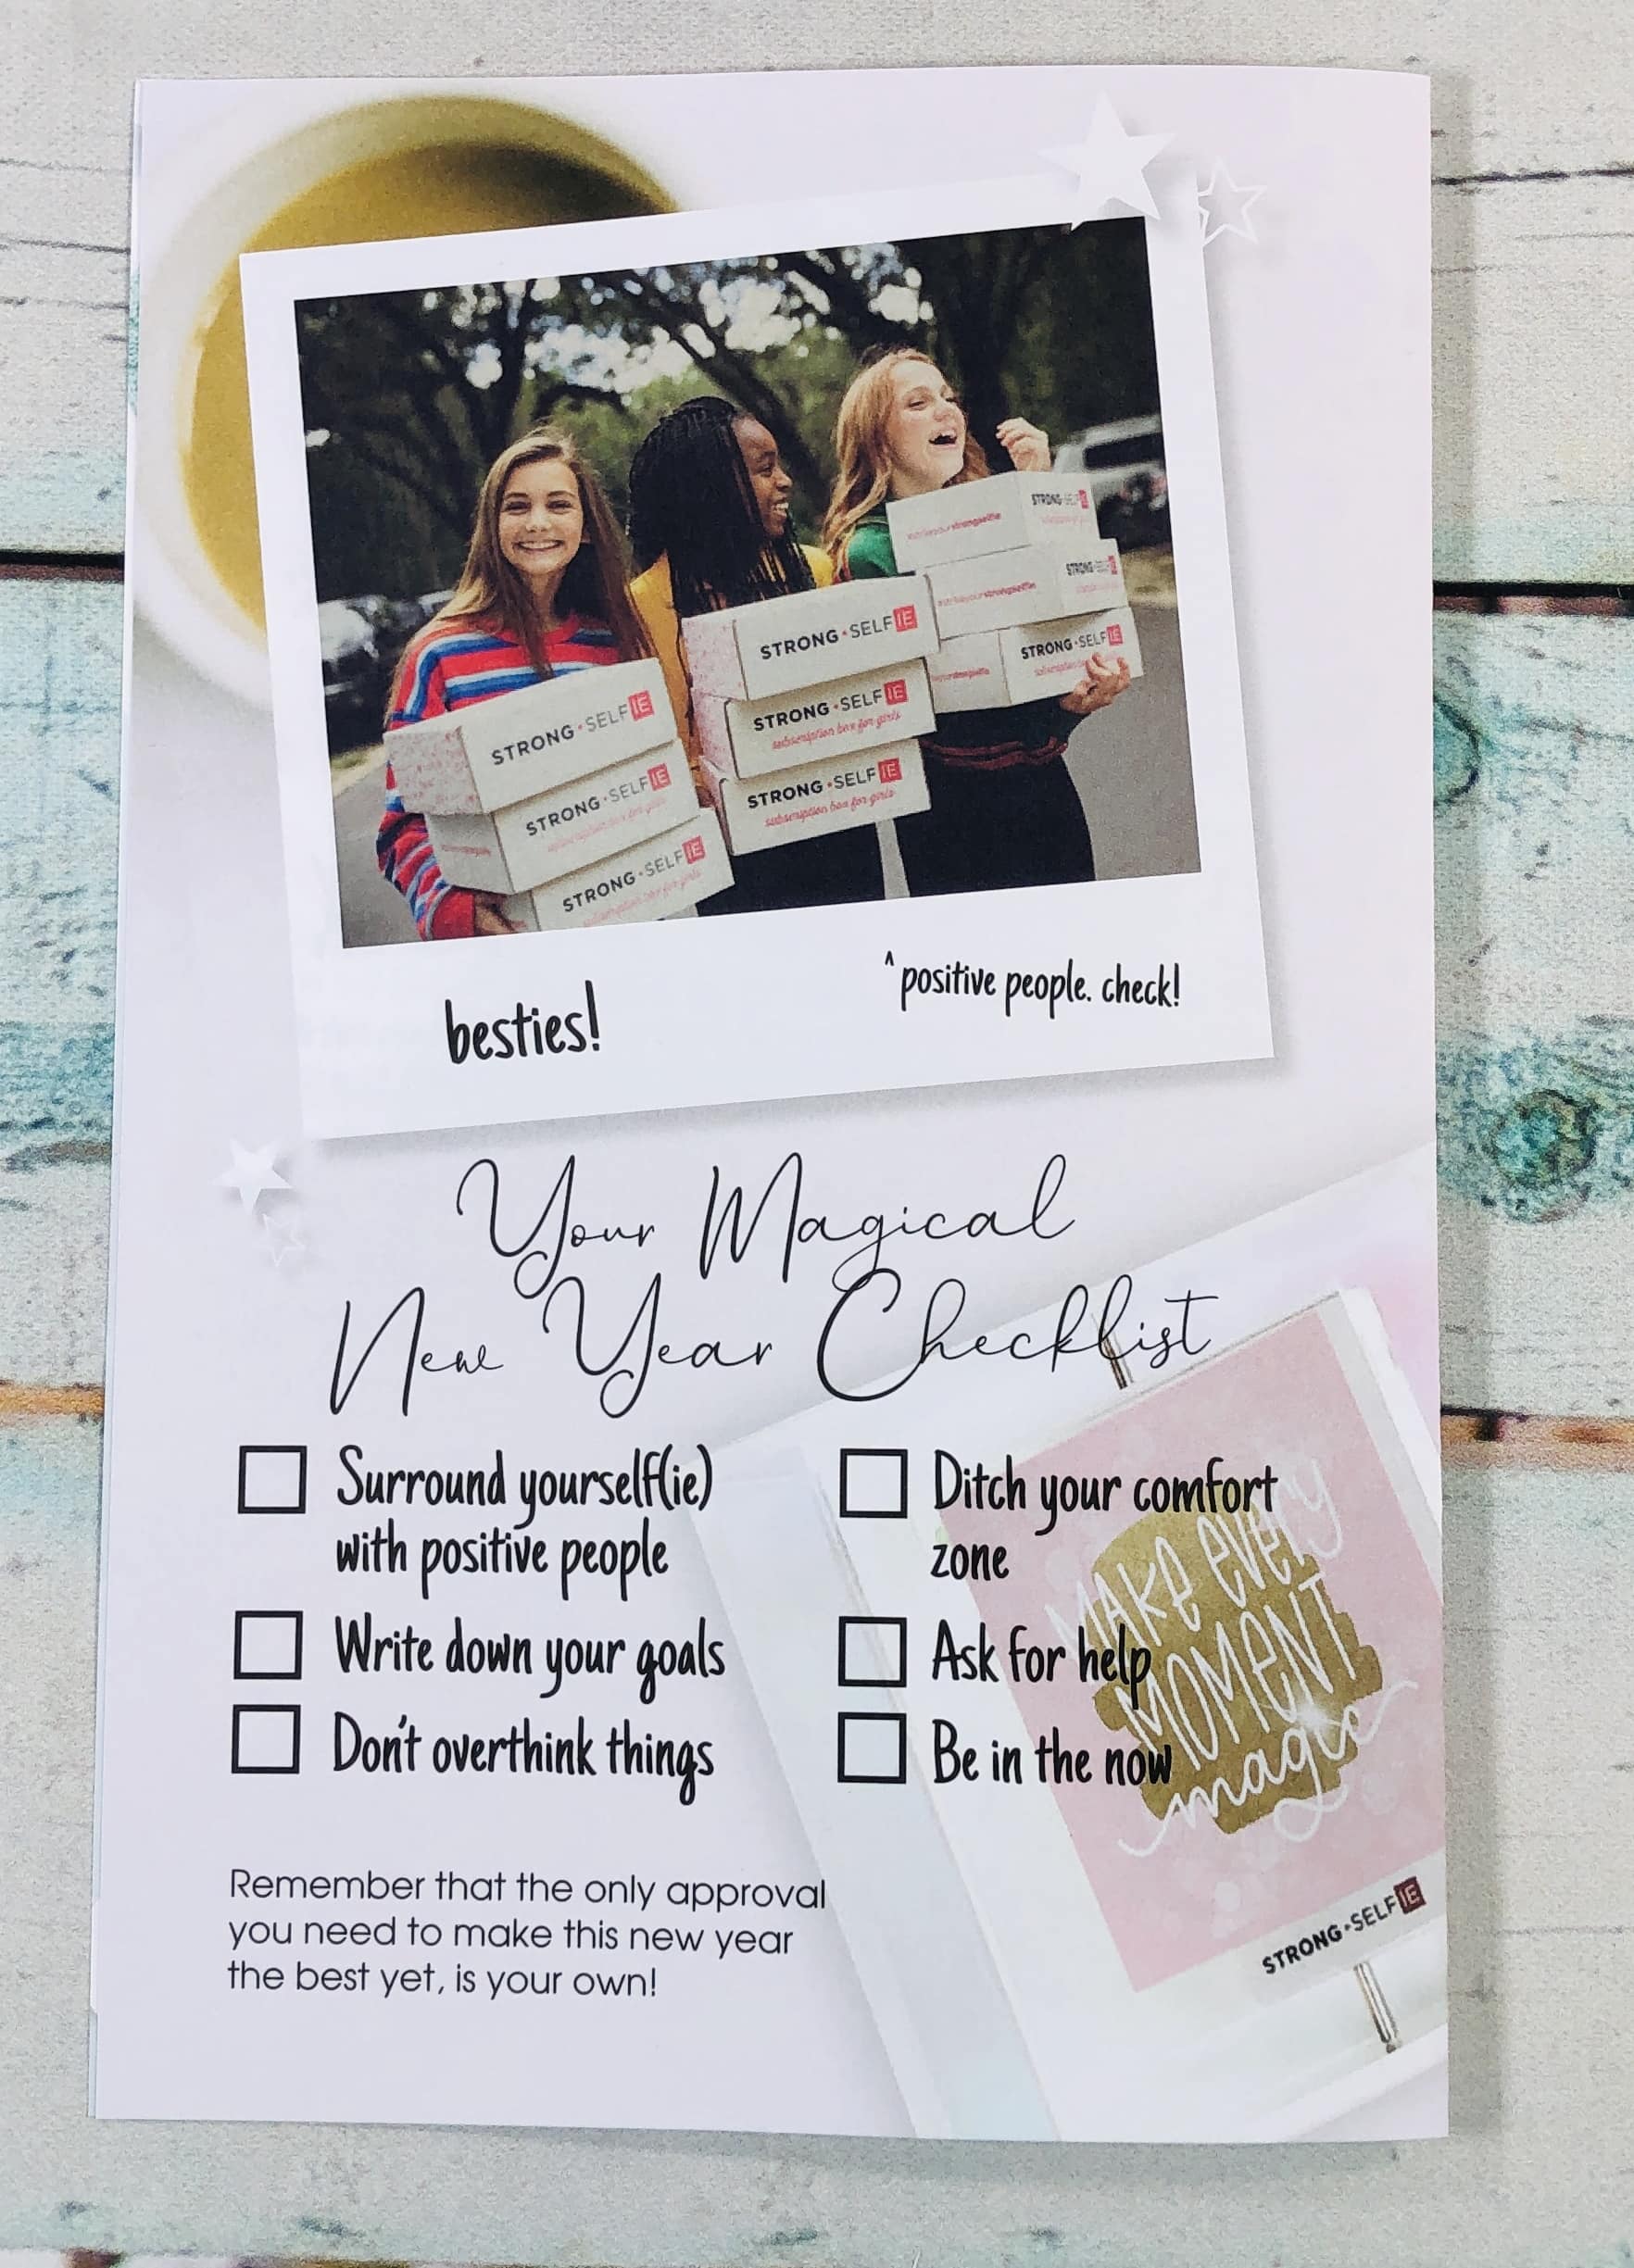 #strikeyourstrongselfie
STRONG·SELFIE
STRONG·SELFIE
STRONG·SELFIE
STRONG·SELFIE
STRONG·SELFIE
subscription box for girls
STRONG·SELFIE
subscription box for girls
STRONG·SELFIE
STRONG·SELFIE
subscription box for girls
STRONG·SELFIE
subscription box for girls
besties!
^ positive people. check!
Your Magical
New Year Checklist
Surround yourself(ie)
with positive people
Write down your goals
Don't overthink things
Ditch your comfort
zone
Ask for help
Be in the now
MAKE every
MOMENT
magic
STRONG·SELFIE
Remember that the only approval
you need to make this new year
the best yet, is your own!